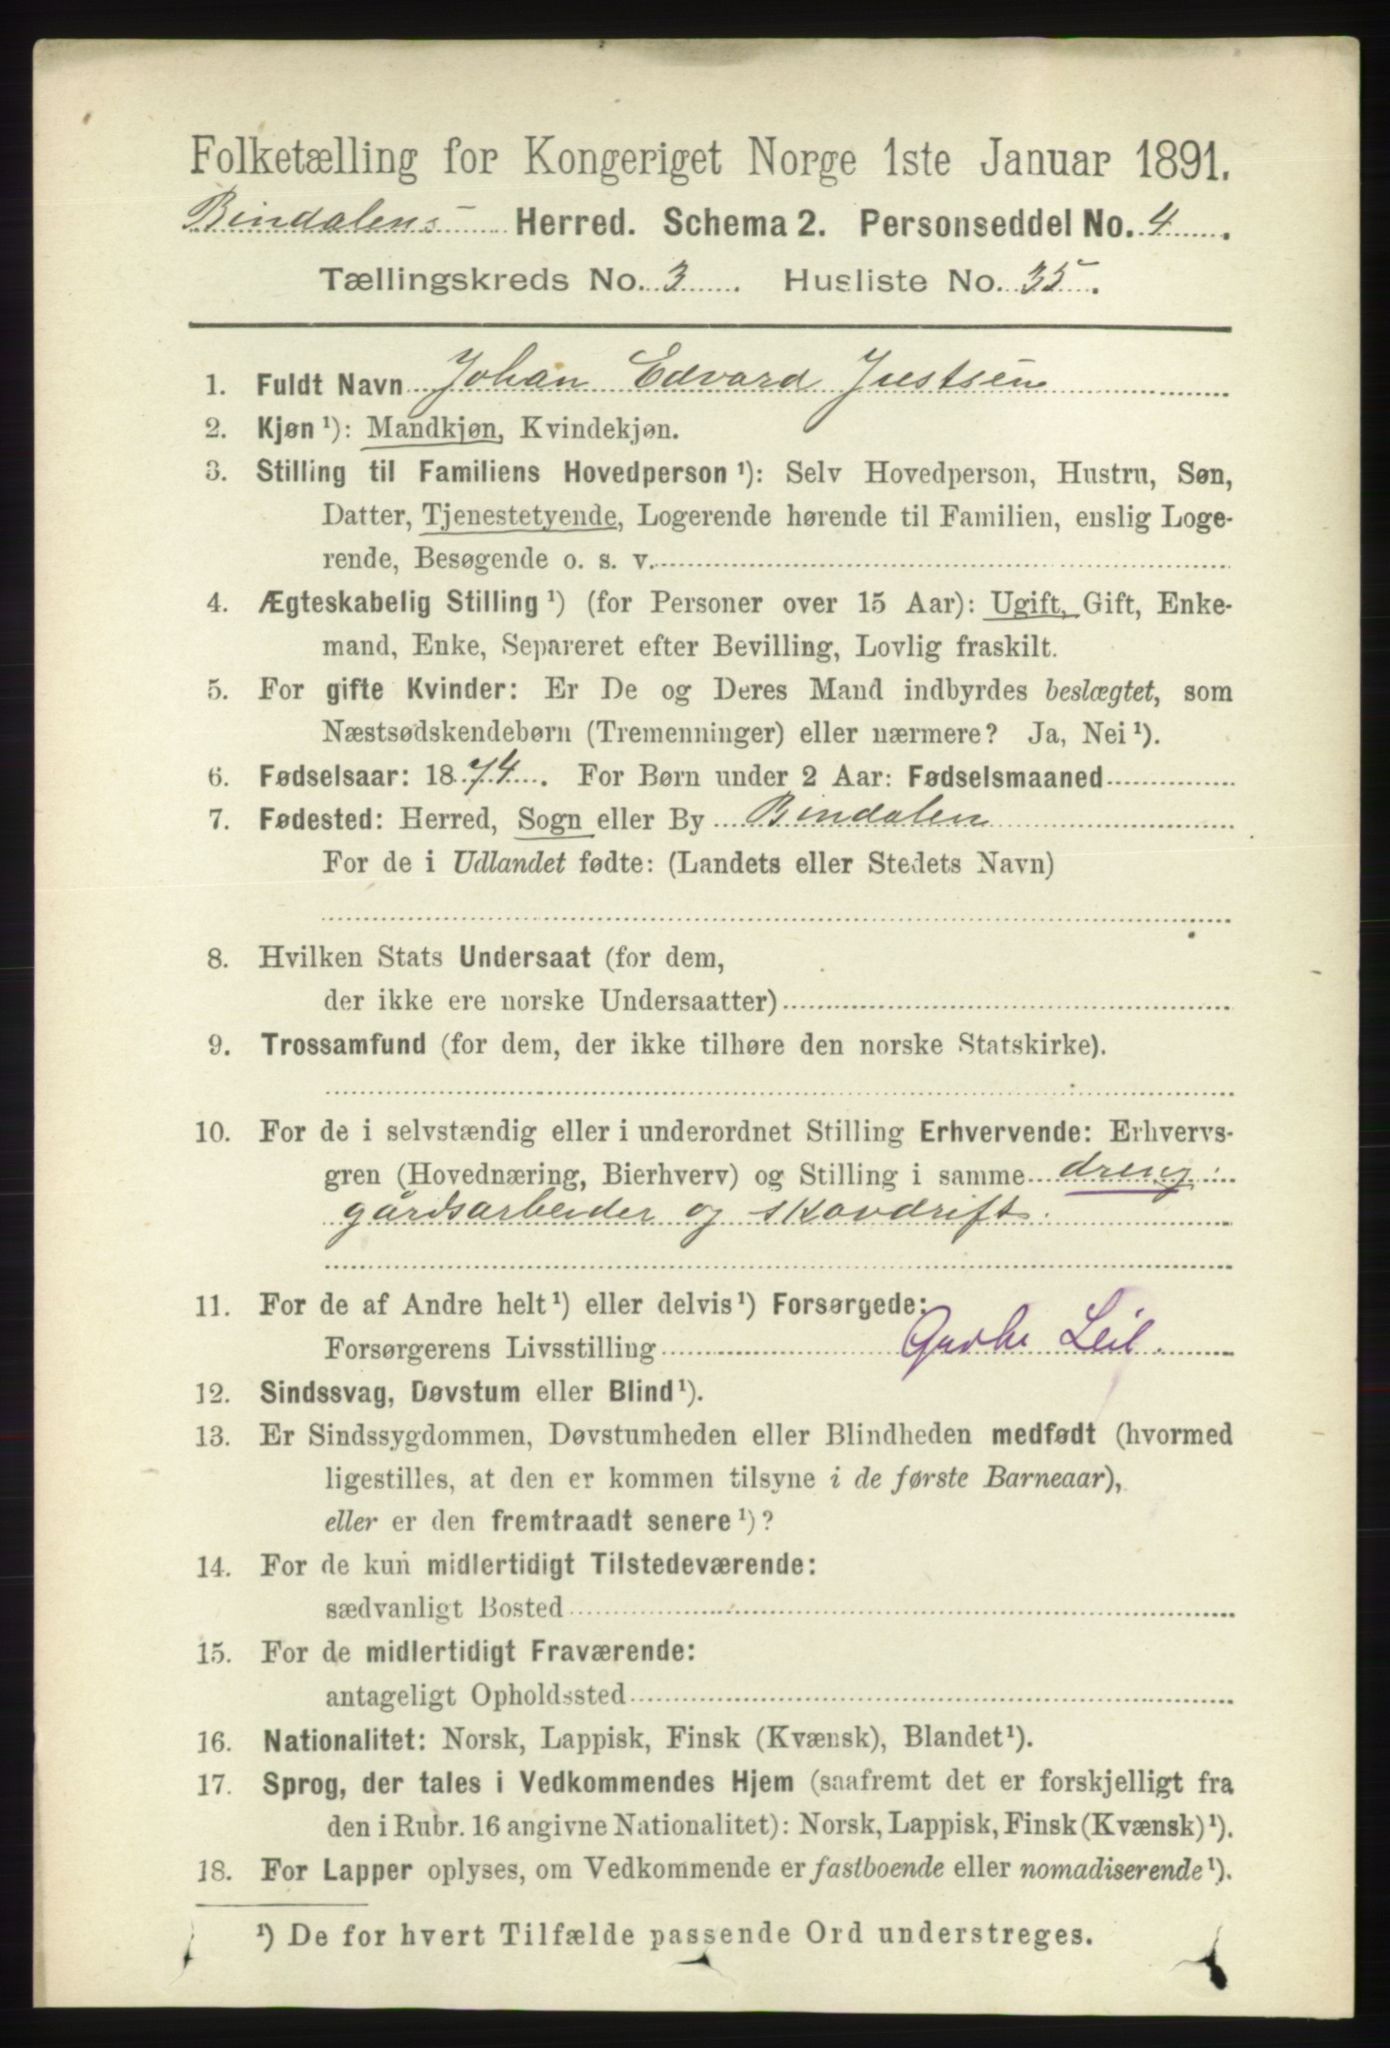 Folketælling for Kongeriget Norge 1ste Januar 1891.
Bindalens Herred. Schema 2. Personseddel No. 4.
Tællingskreds No. 3. Husliste No. 35.
1. Fuldt Navn Johan Edvard Justsen
2. Kjøn ¹): Mandkjøn, Kvindekjøn.
3. Stilling til Familiens Hovedperson ¹): Selv Hovedperson, Hustru, Søn,
Datter, Tjenestetyende, Logerende hørende til Familien, enslig Loge-
rende, Besøgende o. s. v.
4. Ægteskabelig Stilling ¹) (for Personer over 15 Aar): Ugift, Gift, Enke-
mand, Enke, Separeret efter Bevilling, Lovlig fraskilt.
5. For gifte Kvinder: Er De og Deres Mand indbyrdes beslægtet, som
Næstsødskendebørn (Tremenninger) eller nærmere? Ja, Nei ¹).
6. Fødselsaar: 1874. For Børn under 2 Aar: Fødselsmaaned
7. Fødested: Herred, Sogn eller By Bindalen
For de i Udlandet fødte: (Landets eller Stedets Navn)
8. Hvilken Stats Undersaat (for dem,
der ikke ere norske Undersaatter)
9. Trossamfund (for dem, der ikke tilhøre den norske Statskirke).
10. For de i selvstændig eller i underordnet Stilling Erhvervende: Erhvervs-
gren (Hovednæring, Bierhverv) og Stilling i samme dreng:
gårdsarbeider og skovdrift.
11. For de af Andre helt ¹) eller delvis ¹) Forsørgede:
Forsørgerens Livsstilling
12. Sindssvag, Døvstum eller Blind ¹).
13. Er Sindssygdommen, Døvstumheden eller Blindheden medfødt (hvormed
ligestilles, at den er kommen tilsyne i de første Barneaar),
eller er den fremtraadt senere ¹)?
14. For de kun midlertidigt Tilstedeværende:
sædvanligt Bosted
15. For de midlertidigt Fraværende:
antageligt Opholdssted
16. Nationalitet: Norsk, Lappisk, Finsk (Kvænsk), Blandet ¹).
17. Sprog, der tales i Vedkommendes Hjem (saafremt det er forskjelligt fra
den i Rubr. 16 angivne Nationalitet): Norsk, Lappisk, Finsk (Kvænsk) ¹).
18. For Lapper oplyses, om Vedkommende er fastboende eller nomadiserende ¹).
¹) De for hvert Tilfælde passende Ord understreges.